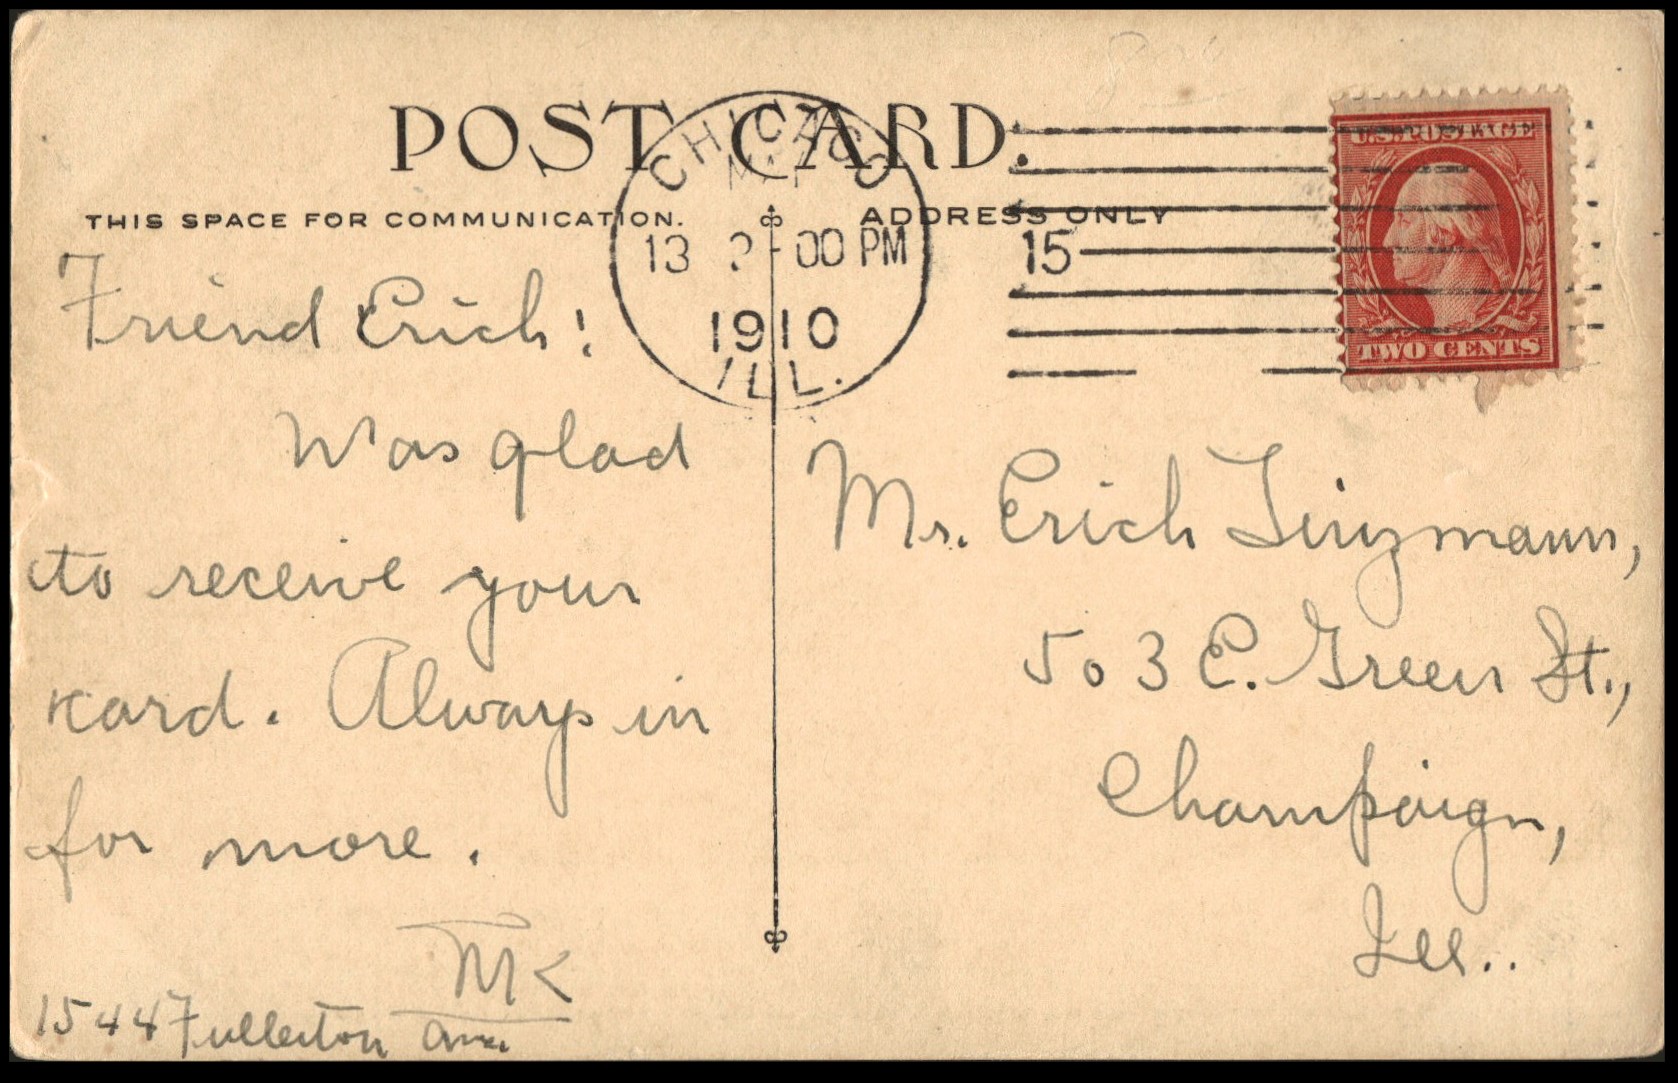 POST CARD.
CHICAGO
THIS SPACE FOR COMMUNICATION.
ADDRESS ONLY
13 -00 PM
15
1910
ILL.
U.S. POSTAGE
TWO CENTS
Friend Erich!
Was glad
to receive your
kard. Always in
for more.
MK
1544 Fullerton Ave.
Mr. Erich Linzmann,
503 E. Green St.,
Champaign,
Ill..